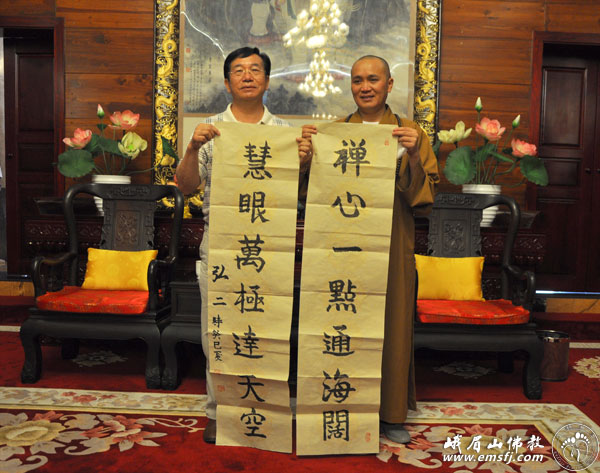 禅心一點通海闊
慧眼萬極達天空
弘二 時癸巳夏
峨眉山佛教
www.emsfj.com